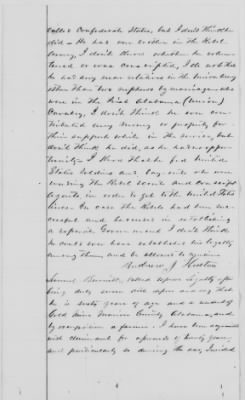 called Confederate States, but I don't think he
did. He has one brother in the Rebel
Army, I don't know whether he volun-
teered or was conscripted, I do not think
he has any near relatives in the Union Army
other than two nephews by marriage who
were in the First Alabama (Union)
Cavalry, I don't think he ever con-
tributed any money or property for
their support while in the service, but
don't think he did, as he had no oppor-
tunity. I know that he fed United
States soldiers and Conscripts who were
evading the Rebel Cavalry and Conscript
agents, in order to get to the United States
lines. In case the Rebels had been suc-
cessful and succeeded in establishing
a separate Government I don't think
he could ever have established his loyalty
among them, and be allowed to remain
Andrew J. Hutto
Samuel Burwell, called upon loyalty after
being duly sworn did depose and say that
he is sixty years of age and a resident of
Gold Mine Marion County Alabama, and
by occupation a farmer. I have been acquainted
with claimant for upwards of twenty years,
and particularly so during the war, I resided